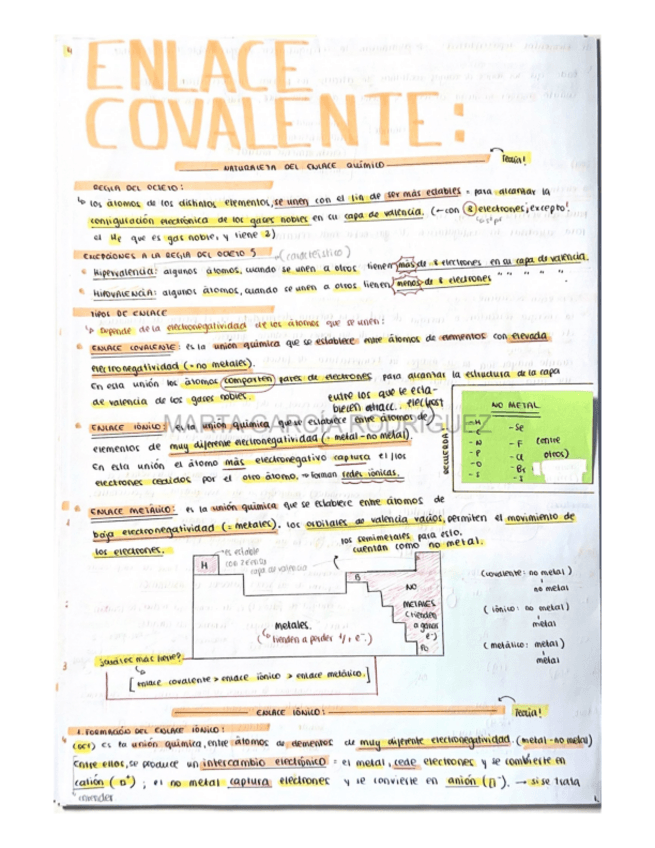 ENLACE
COVALENTE:
NATURALEZA DEL ENLACE QUÍMICO
Teoría!
REGLA DEL OCTETO:
los átomos de los distintos elementos, se unen con el fin de ser más estables = para alcanzar la
configuración electrónica de los gases nobles en su capa de valencia. (←con 8 electrones; excepto!
el He que es gas noble, y tiene 2)
EXCEPCIONES A LA REGLA DEL OCTETO
(característico)
Hipervalencia: algunos átomos, cuando se unen a otros tienen más de 8 electrones en su capa de valencia.
HIPOVALENCIA: algunos átomos, cuando se unen a otros tienen menos de 8 electrones " " " " "
TIPOS DE ENLACE
Depende de la electronegatividad de los átomos que se unen:
ENLACE COVALENTE: es la unión química que se establece entre átomos de elementos con elevada
electronegatividad (= no metales).
En esta unión los átomos comparten pares de electrones para alcanzar la estructura de la capa
de valencia de los gases nobles.
entre los que se esta-
blecen atracc. electrost
MARTA GARCÍA RODRÍGUEZ
ENLACE IÓNICO: es la unión química que se establece entre átomos de
elementos de muy diferente electronegatividad (= metal-no metal).
En esta unión el átomo más electronegativo captura el/los
electrones cedidos por el otro átomo. → forman redes iónicas.
RECUERDA
NO METAL
- H
- N
- P
- O
- S
- Se
- F
- Cl
- Br
- I
(entre
otros)
ENLACE METÁLICO: es la unión química que se establece entre átomos de
baja electronegatividad (= metales). los orbitales de valencia vacíos, permiten el movimiento de
los electrones.
los semimetales para esto,
cuentan como no metal.
H
es estable
con 2 e- en su
capa de valencia
B
NO
METALES
(tienden
a ganar
e-)
Po
metales.
(tienden a perder e-)
(covalente: no metal)
no metal
(iónico: no metal)
metal
(metálico: metal)
metal
¿cuál es más fuerte?
enlace covalente > enlace iónico > enlace metálico.
ENLACE IÓNICO:
Teoría!
1. FORMACIÓN DEL ENLACE IÓNICO:
(DEF) es la unión química, entre átomos de elementos de muy diferente electronegatividad (metal-no metal)
Entre ellos, se produce un intercambio electrónico = el metal, cede electrones y se convierte en
catión (n+) ; el no metal captura electrones y se convierte en anión (n-). → si se trata